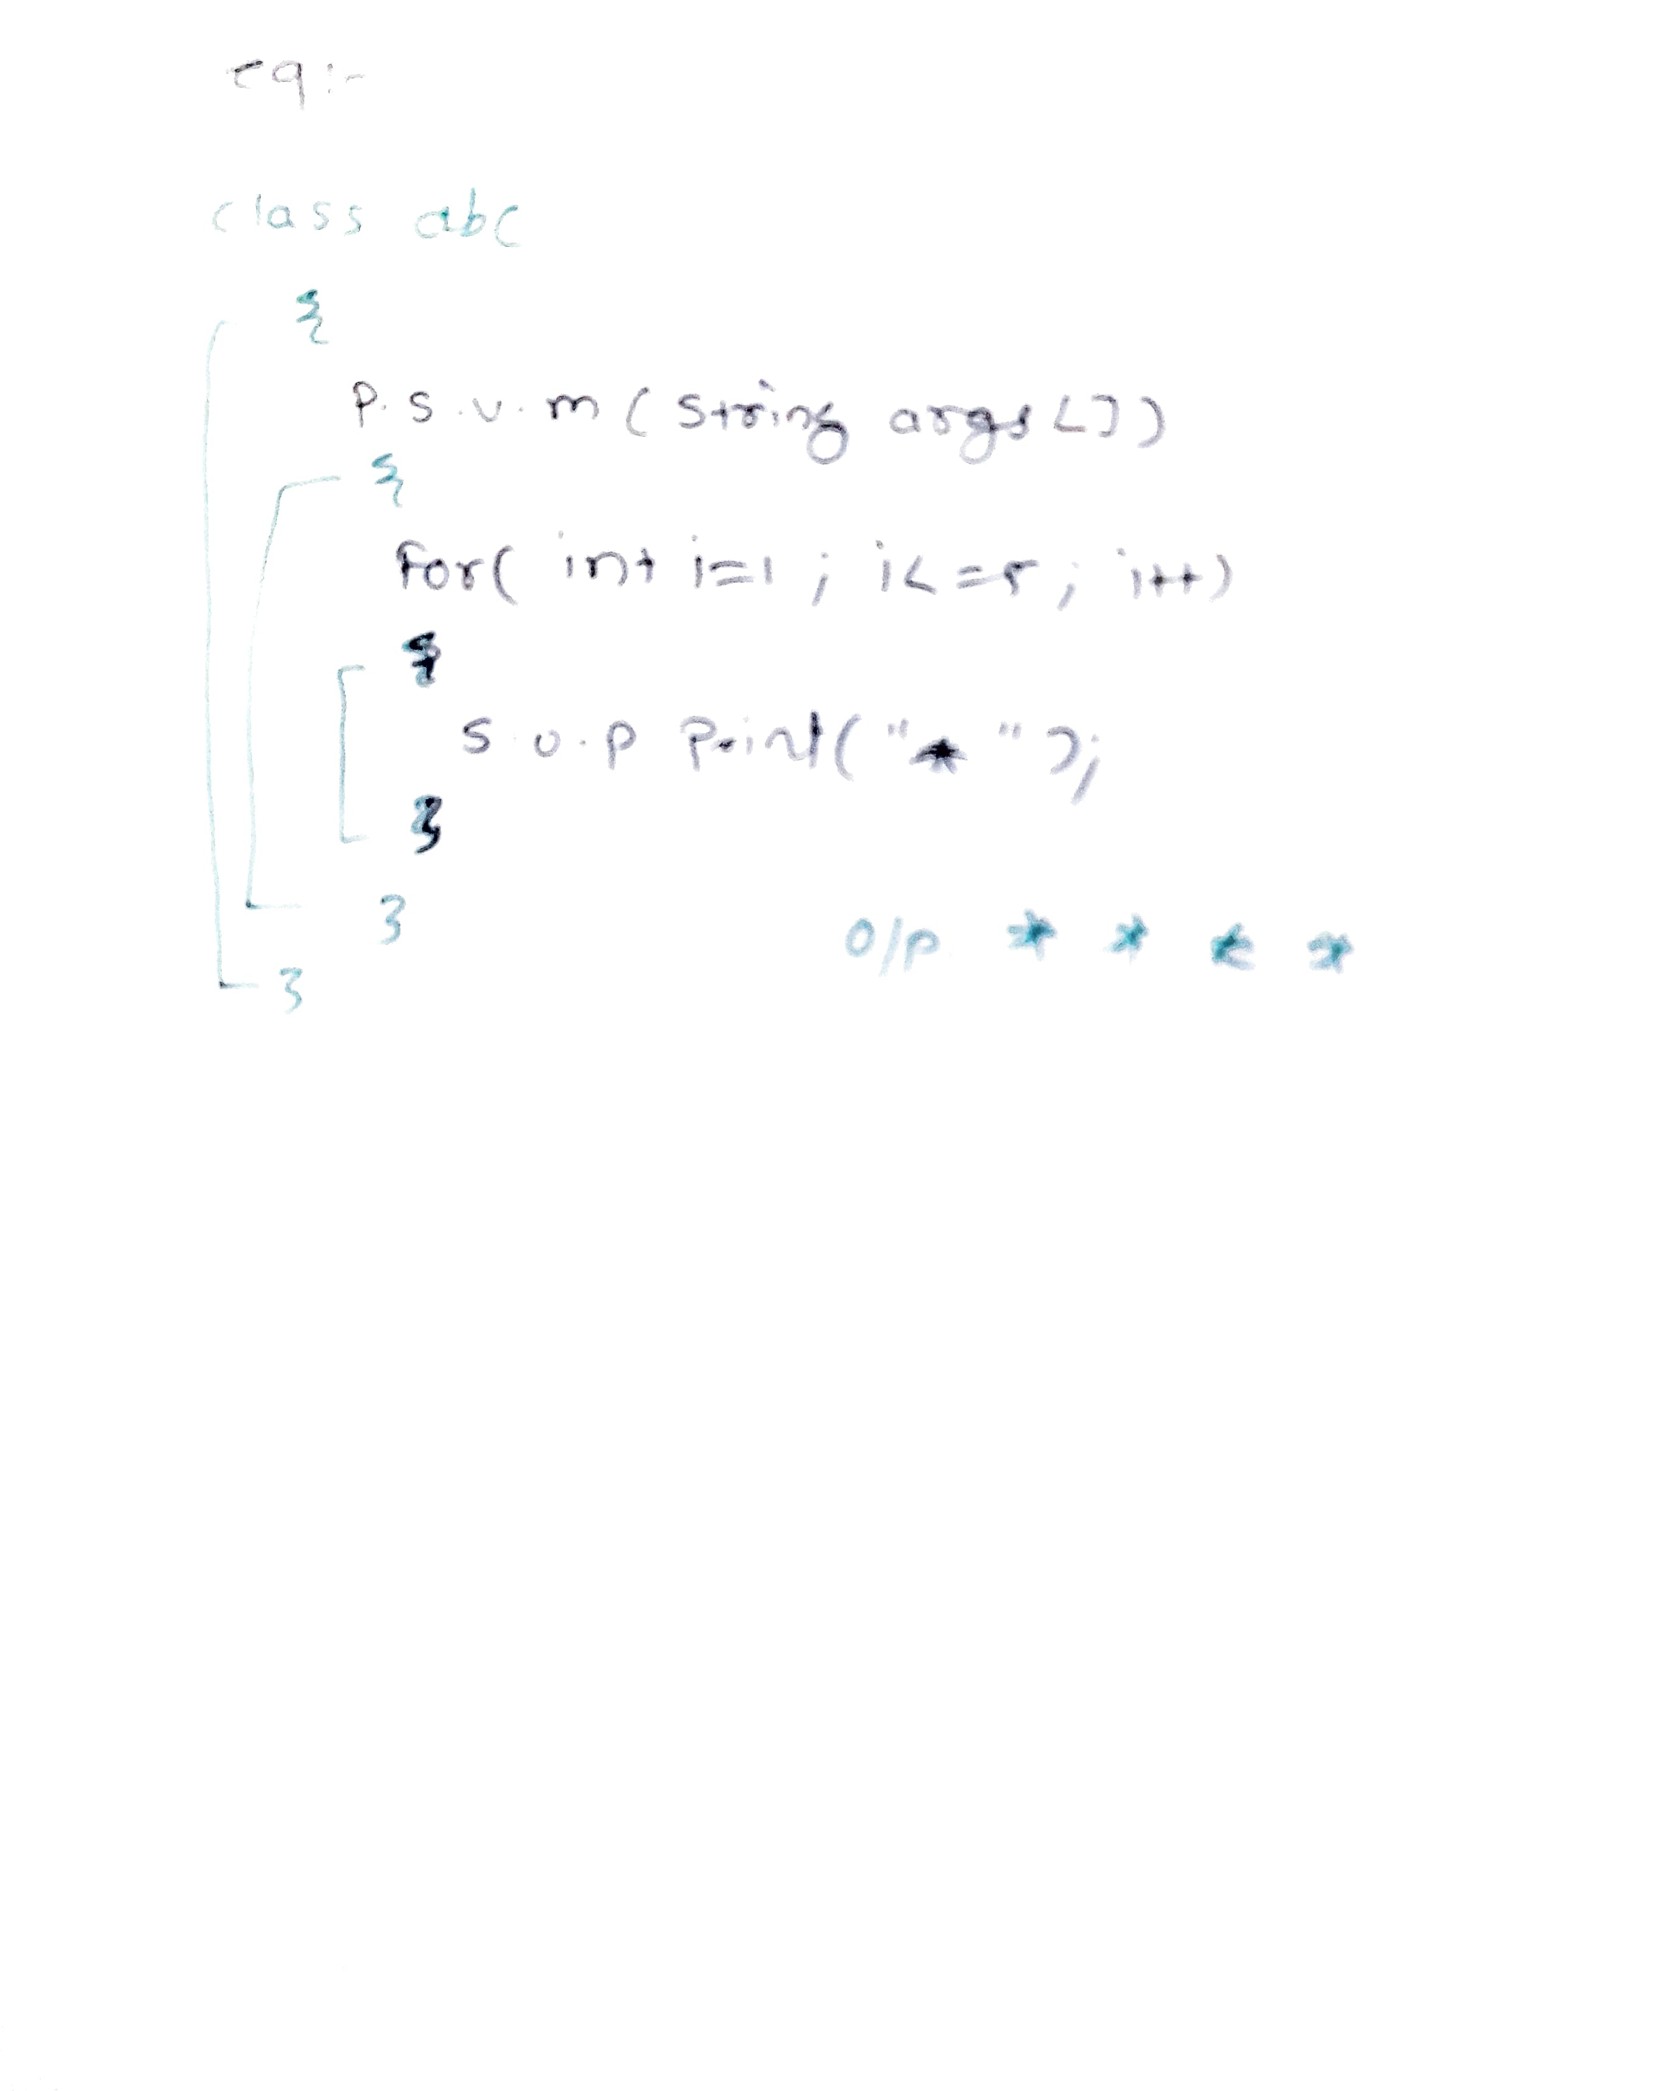 eg:-
class abc
{
P.S.V.m (String args[])
{
for( int i=1 ; i<=5 ; i++)
{
S.o.p Print("*");
}
}
O/p * * * *
}